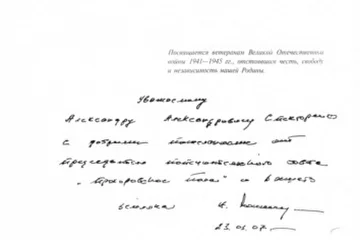 Посвящается ветеранам Великой Отечественной
войны 1941—1945 гг., отстоявшим честь, свободу
и независимость нашей Родины.
Уважаемому
Александру Александровичу
с добрыми пожеланиями от
председателя попечительского совета
„Прохоровское поле"
23.01.07